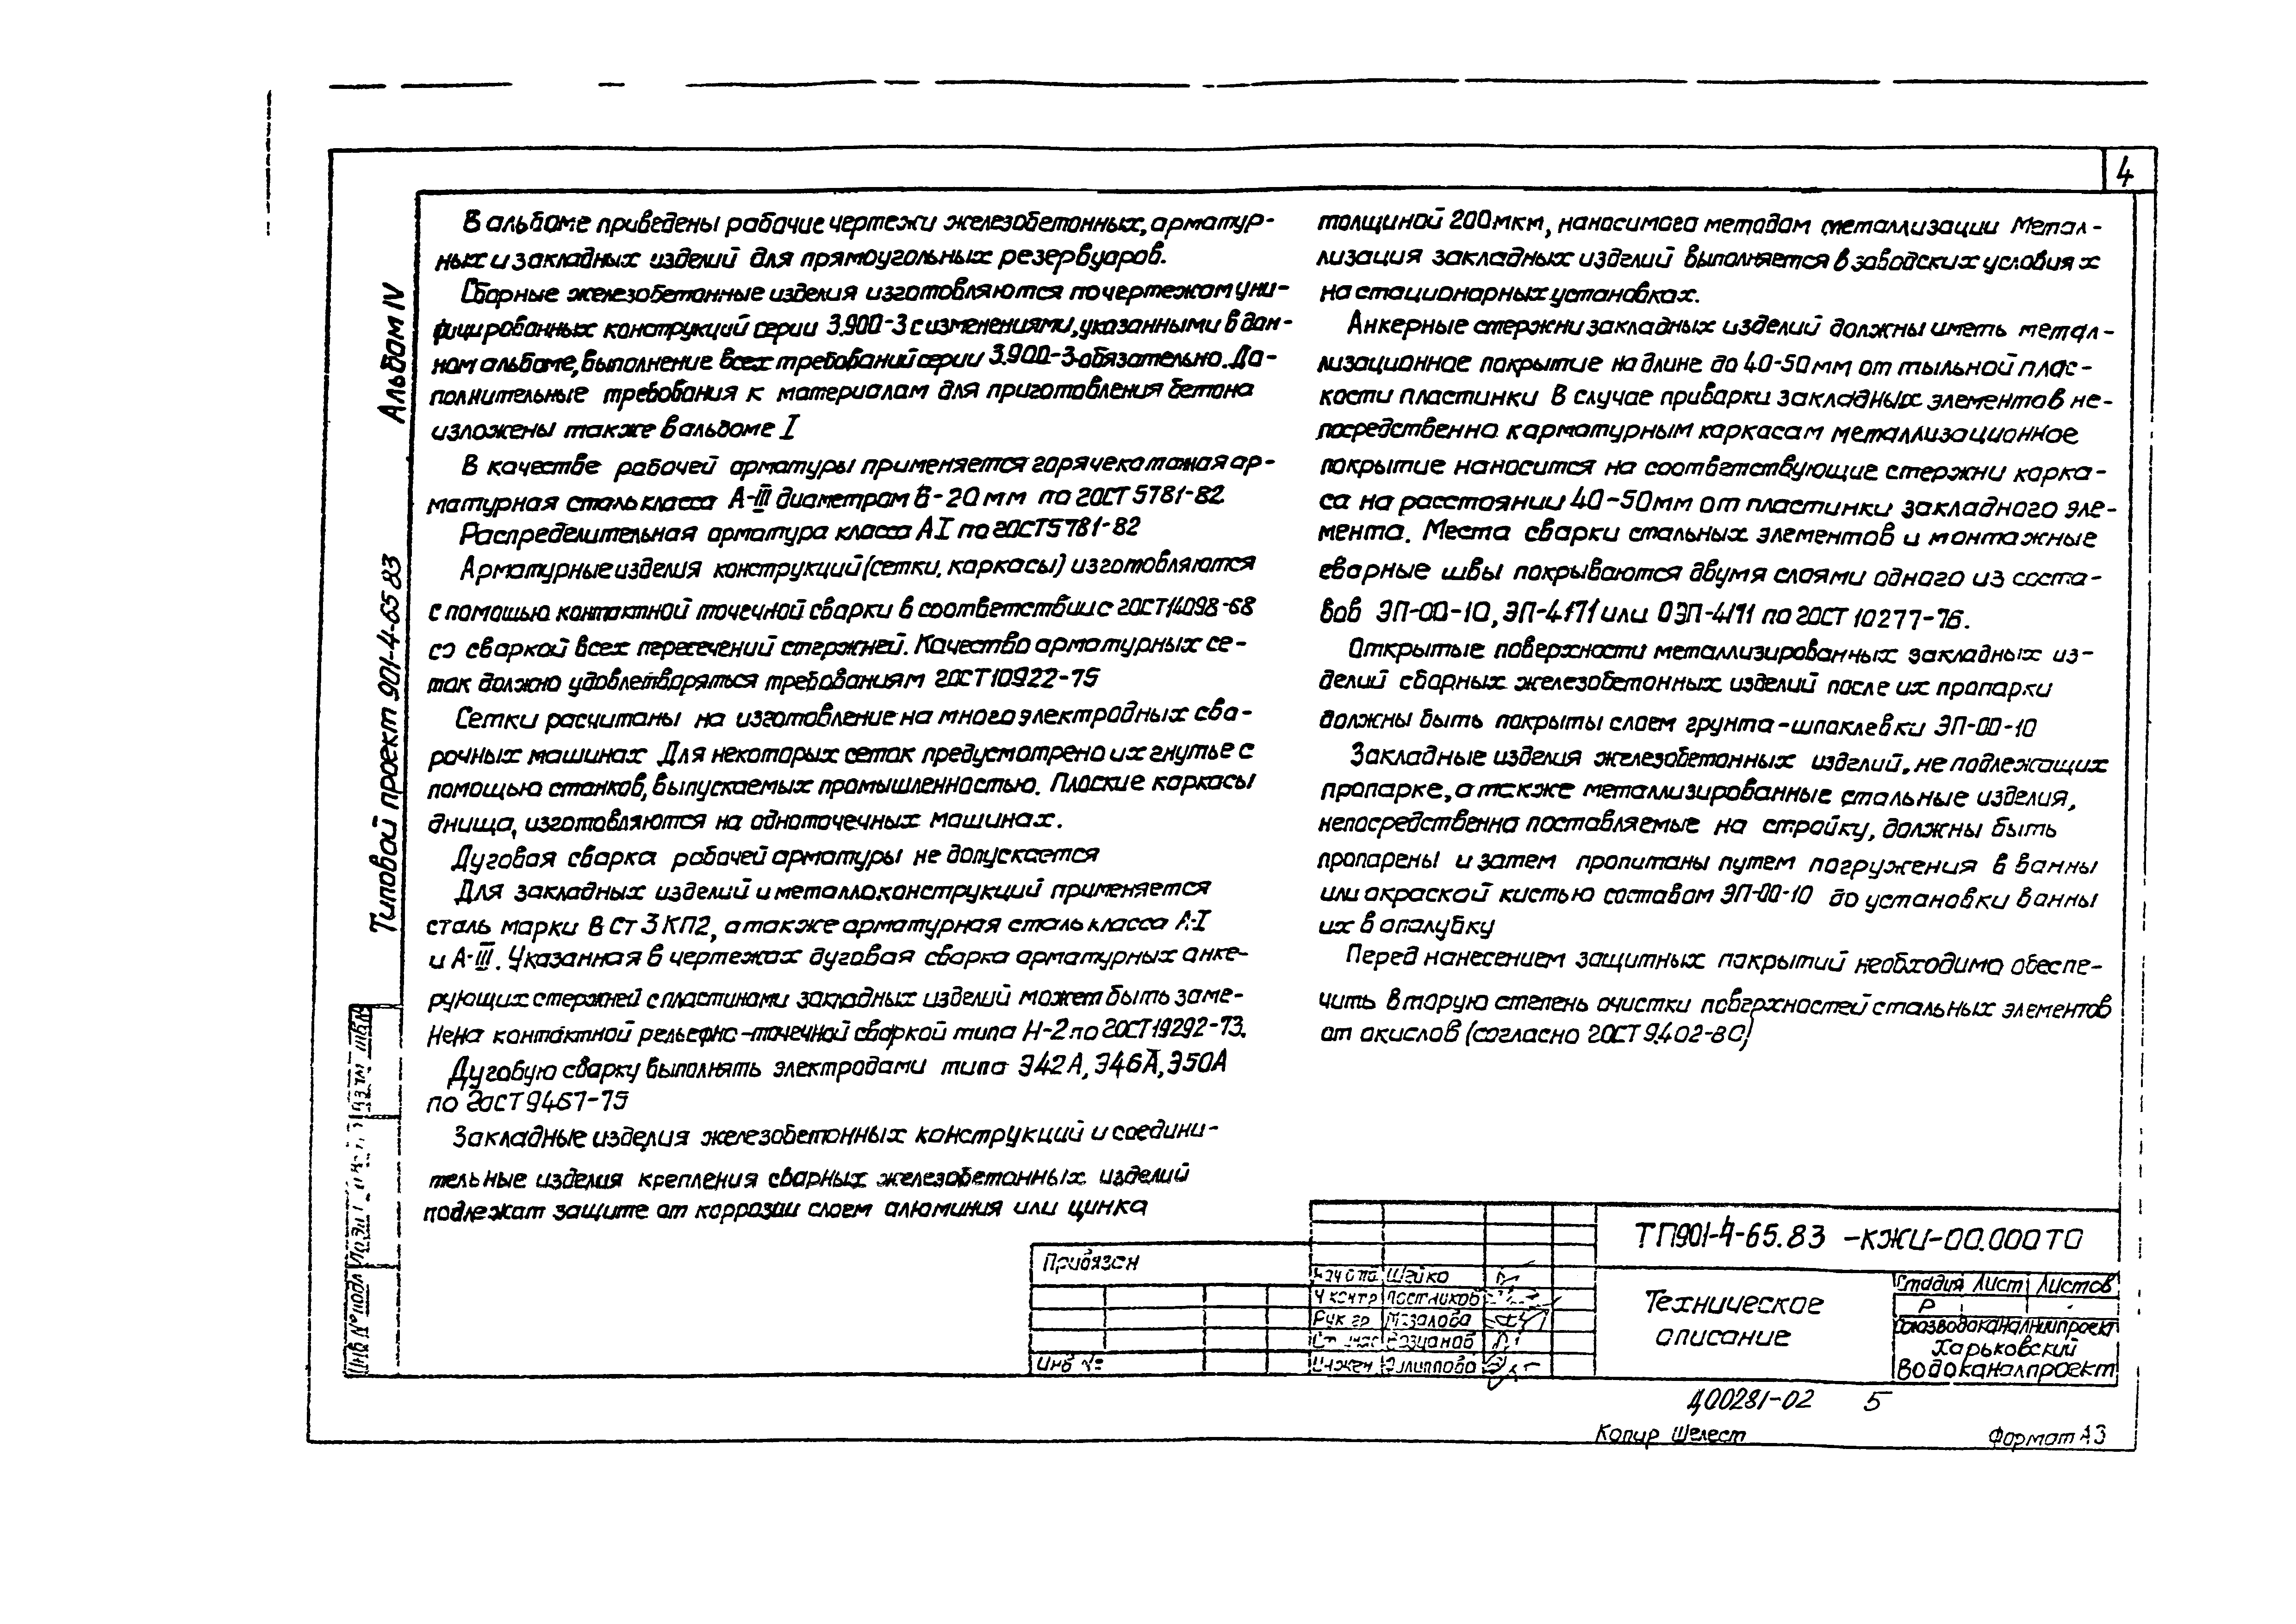 4
В альбоме приведены рабочие чертежи железобетонных, арматур-
ных и закладных изделий для прямоугольных резервуаров.
Сборные железобетонные изделия изготовляются по чертежам уни-
фицированных конструкций серии 3.900-3 с изменениями, указанными в дан-
ном альбоме, выполнение всех требований серии 3.900-3-обязательно. До-
полнительные требования к материалам для приготовления бетона
изложены также в альбоме I
В качестве рабочей арматуры применяется горячекатаная ар-
матурная сталь класса А-III диаметром 6-20 мм по ГОСТ 5781-82
Распределительная арматура класса А I по ГОСТ 5781-82
Арматурные изделия конструкций (сетки, каркасы) изготовляются
с помощью контактной точечной сварки в соответствии с ГОСТ 14098-68
со сваркой всех пересечений стержней. Качество арматурных се-
ток должно удовлетворяться требованиям ГОСТ 10922-75
Сетки расчитаны на изготовление на многоэлектродных сва-
рочных машинах Для некоторых сеток предусмотрено их гнутье с
помощью станков, выпускаемых промышленностью. Плоские каркасы
днища, изготовляются на одноточечных машинах.
Дуговая сварка рабочей арматуры не допускается
Для закладных изделий и металлоконструкций применяется
сталь марки В Ст 3 КП2, а также арматурная сталь класса А-I
и А-III. Указанная в чертежах дуговая сварка арматурных анке-
рующих стержней с пластинами закладных изделий может быть заме-
нена контактной рельефно-точечной сваркой типа Н-2 по ГОСТ 19292-73.
Дуговую сварку выполнять электродами типа Э42А, Э46А, Э50А
по ГОСТ 9467-75
Закладные изделия железобетонных конструкций и соедини-
тельные изделия крепления сварных железобетонных изделий
подлежат защите от коррозии слоем алюминия или цинка
толщиной 200 мкм, наносимого методом металлизации Метал-
лизация закладных изделий выполняется в заводских условиях
на стационарных установках.
Анкерные стержни закладных изделий должны иметь метал-
лизационное покрытие на длине до 40-50 мм от тыльной плос-
кости пластинки В случае приварки закладных элементов не-
посредственно к арматурным каркасам металлизационное
покрытие наносится на соответствующие стержни карка-
са на расстоянии 40-50 мм от пластинки закладного эле-
мента. Места сварки стальных элементов и монтажные
сварные швы покрываются двумя слоями одного из соста-
вов ЭП-00-10, ЭП-4171 или ОЭП-4171 по ГОСТ 10277-76.
Открытые поверхности металлизированных закладных из-
делий сборных железобетонных изделий после их пропарки
должны быть покрыты слоем грунта-шпаклевки ЭП-00-10
Закладные изделия железобетонных изделий, не подлежащих
пропарке, а также металлизированные стальные изделия,
непосредственно поставляемые на стройку, должны быть
пропарены и затем пропитаны путем погружения в ванны
или окраской кистью составом ЭП-00-10 до установки ванны
их в опалубку
Перед нанесением защитных покрытий необходимо обеспе-
чить вторую степень очистки поверхностей стальных элементов
от окислов (согласно ГОСТ 9.402-80)
Альбом IV
Типовой проект 901-4-65 83
Инв № подл
Привязан
Инв №
Шейко
Н контр Постников
Рук гр
Инжен Филиппова
ТП901-4-65.83 -КЖИ-00.000ТО
Техническое
описание
Стадия Лист Листов
Р
Союзводоканалниипроект
Харьковский
Водоканалпроект
Д00281-02 5
Копир Шелест
Формат А3